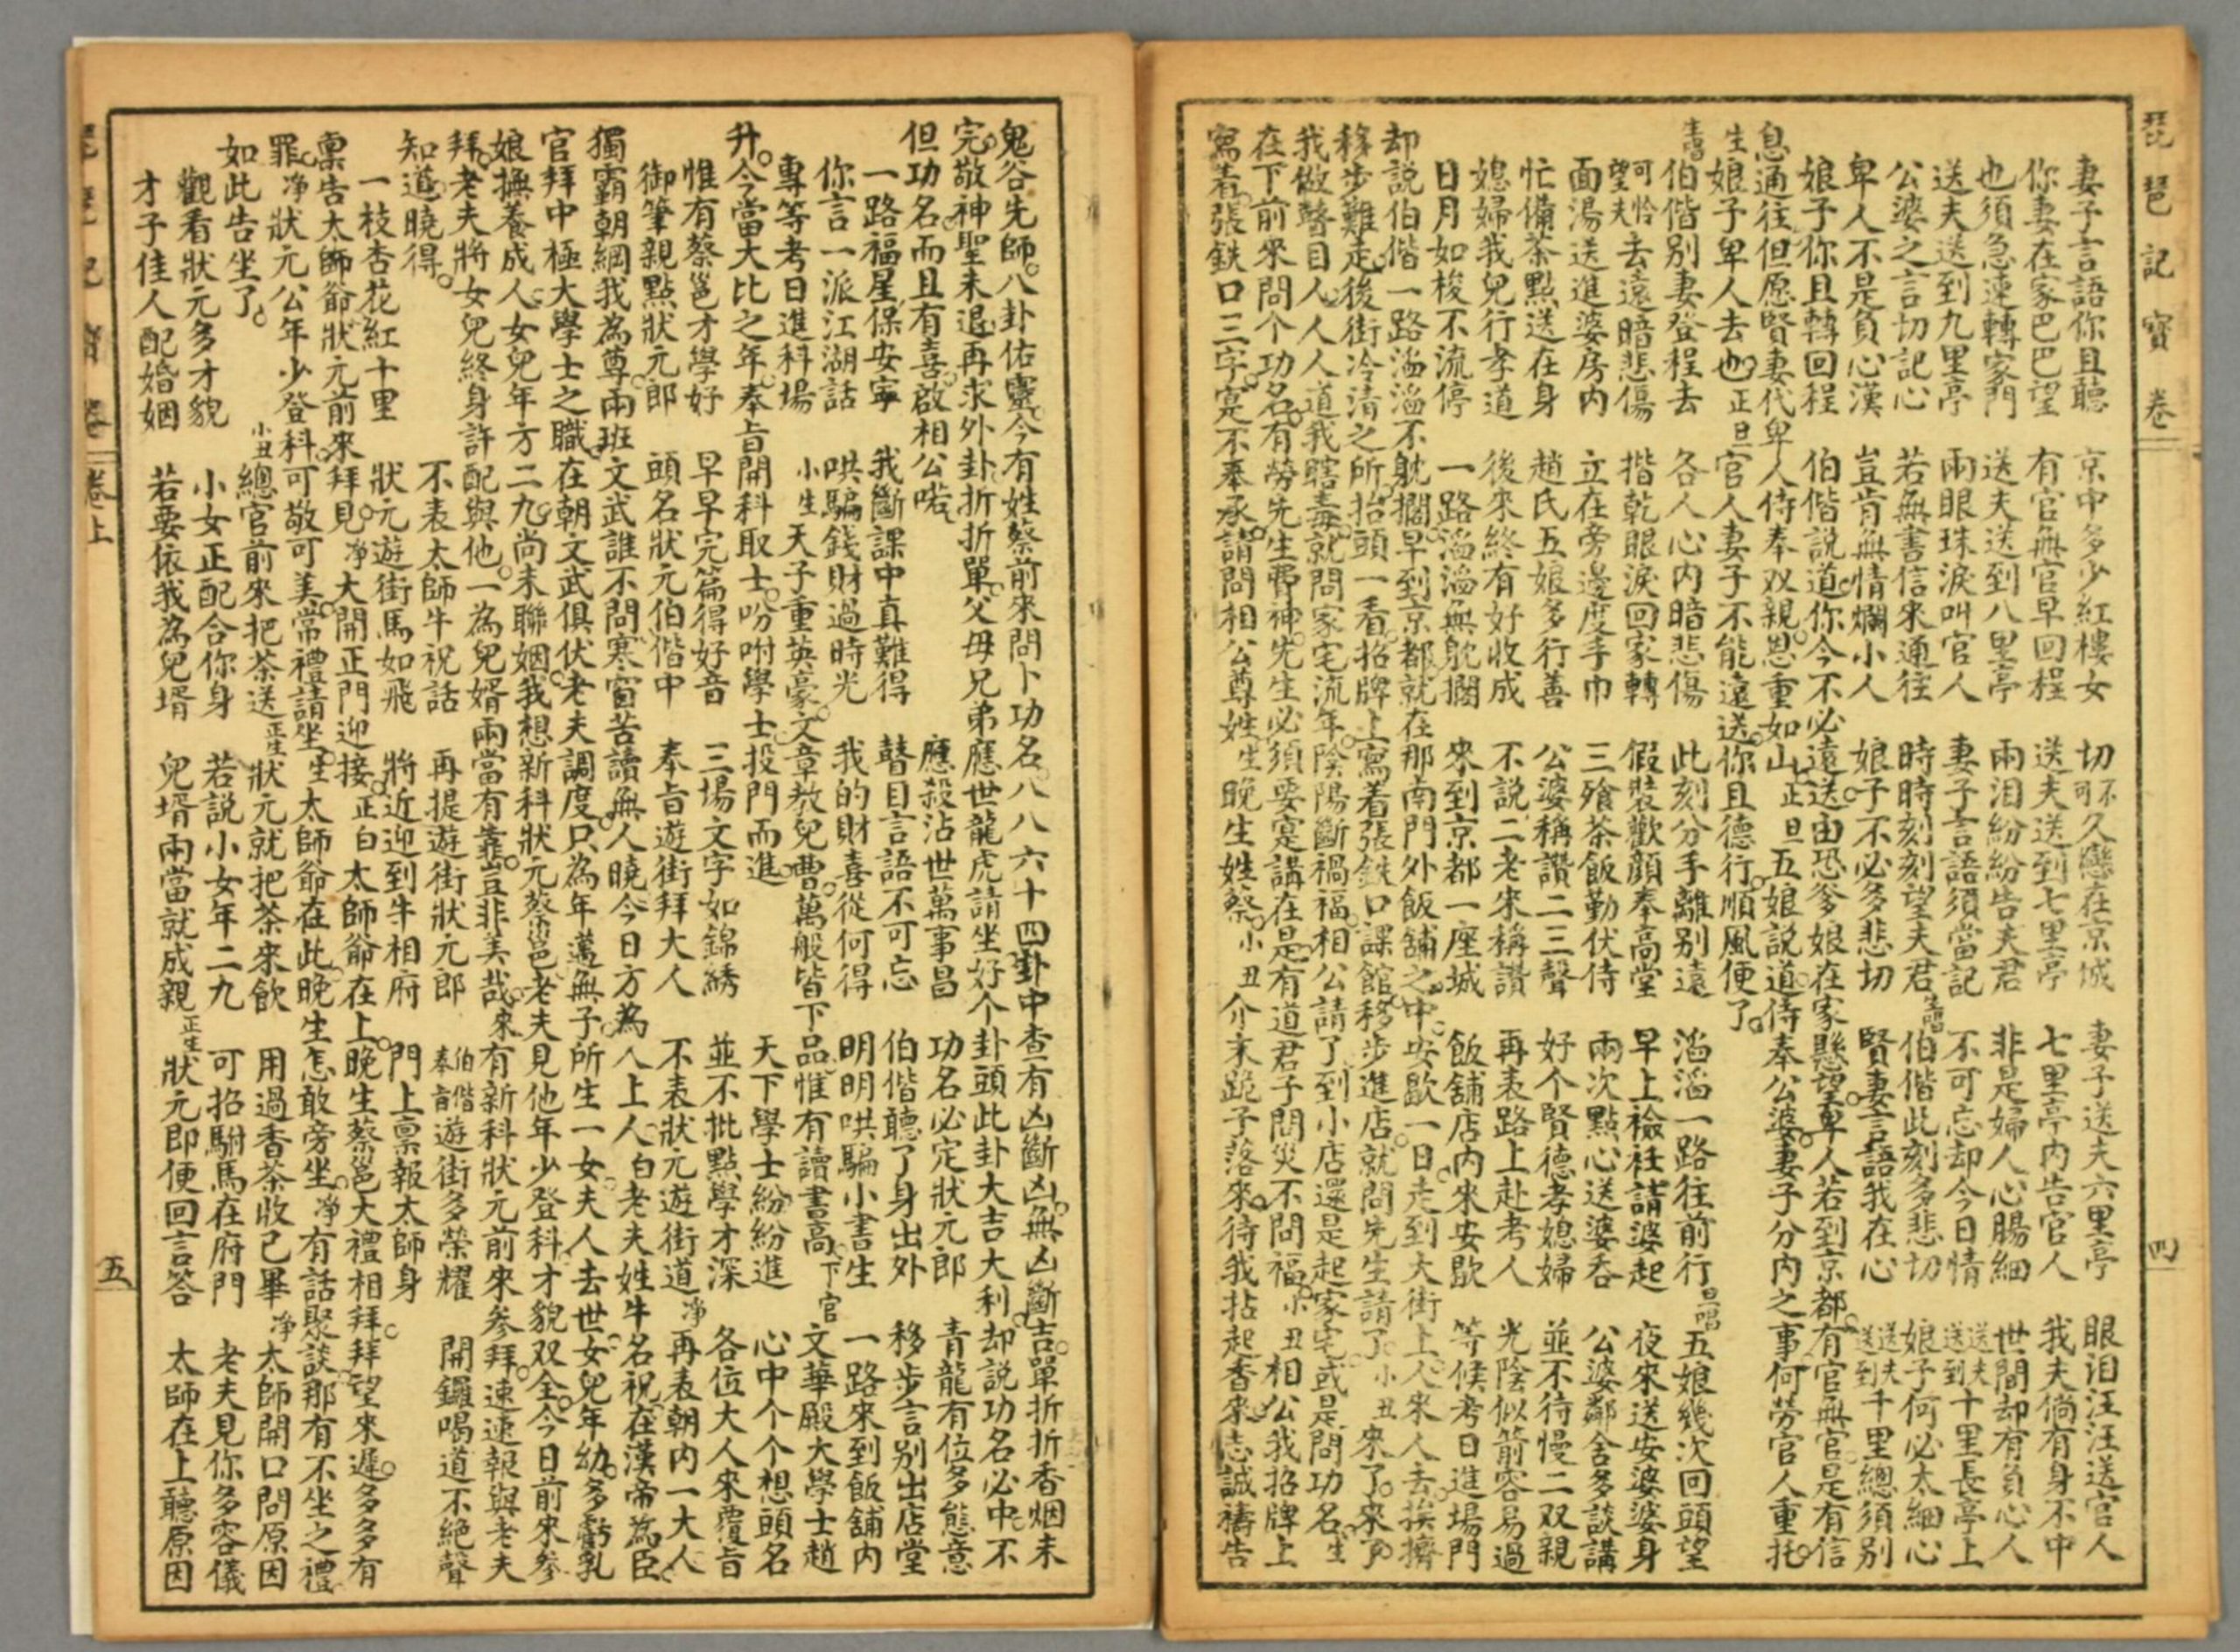 琵琶記寶卷
四
妻子言語你且聽　京中多少紅樓女　切不可久戀在京城　妻子送夫六里亭　眼泪汪汪送官人
你妻在家巴巴望　有官無官早回程　送夫送到七里亭　七里亭內告官人　我夫倘有身不中
也須急速轉家門　送夫送到八里亭　兩泪紛紛告夫君　非是婦人心腸細　世間却有負心人
送夫送到九里亭　兩眼珠淚叫官人　妻子言語須當記　不可忘却今日情　送夫送到十里長亭上
公婆之言切記心　若無書信來通往　時時刻刻望夫君　生唱伯偕此刻多悲切　娘子何必太細心
卑人不是負心漢　豈肯無情爛小人　娘子不必多悲切　賢妻言語我在心　送夫送到千里總須別
娘子你且轉回程　伯偕說道你今不必遠送。由恐爹娘在家懸望。卑人若到京都。有官無官。是有信
息通往但愿賢妻代卑人侍奉双親。恩重如山。正旦五娘說道。侍奉公婆。妻子分內之事何勞官人重托。
生娘子卑人去也。正旦官人妻子不能遠送。你且德行。順風便了。
生唱伯偕別妻登程去　各人心內暗悲傷　此刻分手離別遠　滔滔一路往前行　旦唱五娘幾次回頭望
可恰望夫去遠暗悲傷　揩乾眼淚回家轉　假裝歡顏奉高堂　早上裣衽請婆起　夜來送安婆婆身
面湯送進婆房內　立在旁邊度手巾　三飱茶飯勤伏侍　兩次點心送婆吞　公婆鄰舍多談講
忙備茶點送在身　趙氏五娘多行善　公婆稱讚二三聲　好个賢德孝媳婦　並不待慢二双親
媳婦我兒行孝道　後來終有好收成　不說二老來稱讚　再表路上赴考人　光陰似箭容易過
日月如梭不流停　一路滔滔無躭擱　來到京都一座城　飯舖店內來安歇　等候考日進場門
却說伯偕一路滔滔不躭擱。早到京都。就在那南門外飯舖之中。安歇。一日。走到大街上。人來人去。挨擠
移步難走。後街冷清之所。抬頭一看。招牌上寫着張鉄口課館。移步進店。就問先生請了。小丑來了。來了。
我做瞽目人。人人道我瞎毒。就問家宅流年。陰陽斷禍福。相公請了。到小店還是起家宅。或是問功名。生
在下前來問个功名。有勞先生費神。先生必須要寔講。在是。有道君子問災不問福。小丑相公我招牌上
寫着。張鉄口三字。寔不奉承。請問相公尊姓。生晚生姓蔡。小丑介末跪子落來。待我拈起香來。志誠禱告
鬼谷先師。八卦佑靈。今有姓蔡前來問卜功名。八八六十四卦中查有凶斷凶。無凶斷吉。單折折香烟未
完。敬神聖未退。再求外卦。折折單。父母兄弟應世龍虎請坐。好个卦頭。此卦大吉大利。却說功名必中。不
但功名。而且有喜。啟相公喏。　應殺沾世萬事昌　功名必定狀元郎　青龍有位多態意
一路福星保安寧　我斷課中真難得　瞽目言語不可忘　伯偕聽了身出外　移步言別出店堂
你言一派江湖話　哄騙錢財過時光　我的財喜從何得　明明哄騙小書生　一路來到飯舖內
專等考日進科場　小生天子重英豪。文章教兒曹。萬般皆下品。惟有讀書高。下官文華殿大學士趙
升。今當大比之年。奉旨開科取士。吩咐學士。投門而進。　天下學士紛紛進　心中个个想頭名
惟有蔡邕才學好　早早完篇得好音　三場文字如錦綉　並不批點學才深　各位大人來覆旨
御筆親點狀元郎　頭名狀元伯偕中　奉旨遊街拜大人　不表狀元遊街道　淨再表朝內一大人
獨霸朝綱我為尊。兩班文武誰不問。寒窗苦讀無人曉。今日方為人上人。白老夫姓牛名祝。在漢帝為臣。
官拜中極大學士之職。在朝文武俱伏。老夫調度。只為年邁無子。所生一女。夫人去世。女兒年幼。多虧乳
娘撫養成人。女兒年方二九。尚未聯姻。我想新科狀元蔡邕。老夫見他年少登科。才貌双全。今日前來參
拜。老夫將女兒終身許配與他。一為兒婿兩當有靠。豈非美哉。來有新科狀元前來參拜。速速報與老夫
知道。曉得。　不表太師牛祝話　再提遊街狀元郎　伯偕奉旨遊街多榮耀　開鑼喝道不絕聲
一枝杏花紅十里　狀元遊街馬如飛　將近迎到牛相府　門上禀報太師身
禀告太師爺狀元前來拜見。淨大開正門迎接。正白太師爺在上。晚生蔡邕大禮相拜。拜望來遲。多多有
罪。淨狀元公年少登科。可敬可美。常禮請坐。生太師爺在此。晚生怎敢旁坐。淨有話聚談。那有不坐之禮。
如此告坐了。　小丑總官前來把茶送　正生狀元就把茶來飲　用過香茶收已畢　淨太師開口問原因
觀看狀元多才貌　小女正配合你身　若說小女年二九　可招駙馬在府門　老夫見你多容儀
才子佳人配婚姻　若要依我為兒壻　兒壻兩當就成親　正生狀元即便回言答　太師在上聽原因
卷上
五